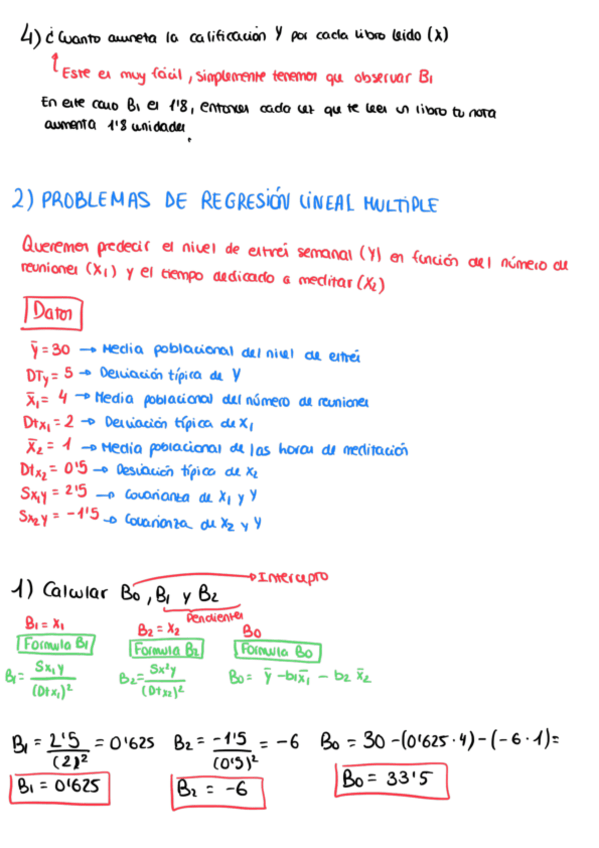 4) ¿Cuanto aumeta la calificación Y por cada libro leido (X)
Este es muy fácil, simplemente tenemos que observar B1
En este caso B1 es 1'8, entonces cada vez que te lees un libro tu nota
aumenta 1'8 unidades.
2) PROBLEMAS DE REGRESIÓN LINEAL MULTIPLE
Queremos predecir el nivel de estrés semanal (Y) en función del número de
reuniones (X₁) y el tiempo dedicado a meditar (X₂)
Datos
ȳ = 30 → Media poblacional del nivel de estrés
DTy = 5 → Desviación típica de Y
x̄₁ = 4 → Media poblacional del número de reuniones
Dtx₁ = 2 → Desviación típica de X₁
x̄₂ = 1 → Media poblacional de las horas de meditación
Dtx₂ = 0'5 → Desviación típica de x₂
Sx₁y = 2'5 → Covarianza de X₁ y Y
Sx₂y = -1'5 → Covarianza de X₂ y Y
1) Calcular B0, B1 y B2 → Intercepto
Pendientes
B1 = X₁ B2 = X₂ B0
Formula B1 Formula B2 Formula B0
B1 = Sx₁y / (Dtx₁)² B2 = Sx²y / (Dtx₂)² B0 = ȳ - b1x̄₁ - b2 x̄₂
B1 = 2'5 / (2)² = 0'625 B2 = -1'5 / (0'5)² = -6 B0 = 30 - (0'625 · 4) - (-6 · 1) =
B1 = 0'625 B2 = -6 B0 = 33'5